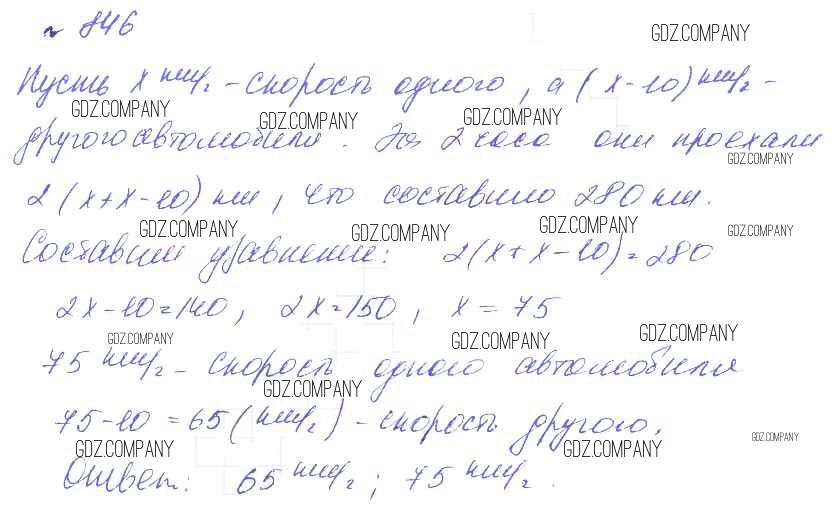 № 846
GDZ.COMPANY
Пусть x км/ч - скорость одного, а (x-10) км/ч -
GDZ.COMPANY GDZ.COMPANY GDZ.COMPANY
другого автомобиля. За 2 часа они проехали
GDZ.COMPANY
2(x+x-10) км, что составило 280 км.
GDZ.COMPANY GDZ.COMPANY GDZ.COMPANY GDZ.COMPANY
Составим уравнение: 2(x+x-10)=280
2x-10=140, 2x=150, x=75
GDZ.COMPANY GDZ.COMPANY GDZ.COMPANY
75 км/ч - скорость одного автомобиля
GDZ.COMPANY
75-10=65 (км/ч) - скорость другого.
GDZ.COMPANY GDZ.COMPANY GDZ.COMPANY
Ответ: 65 км/ч; 75 км/ч.